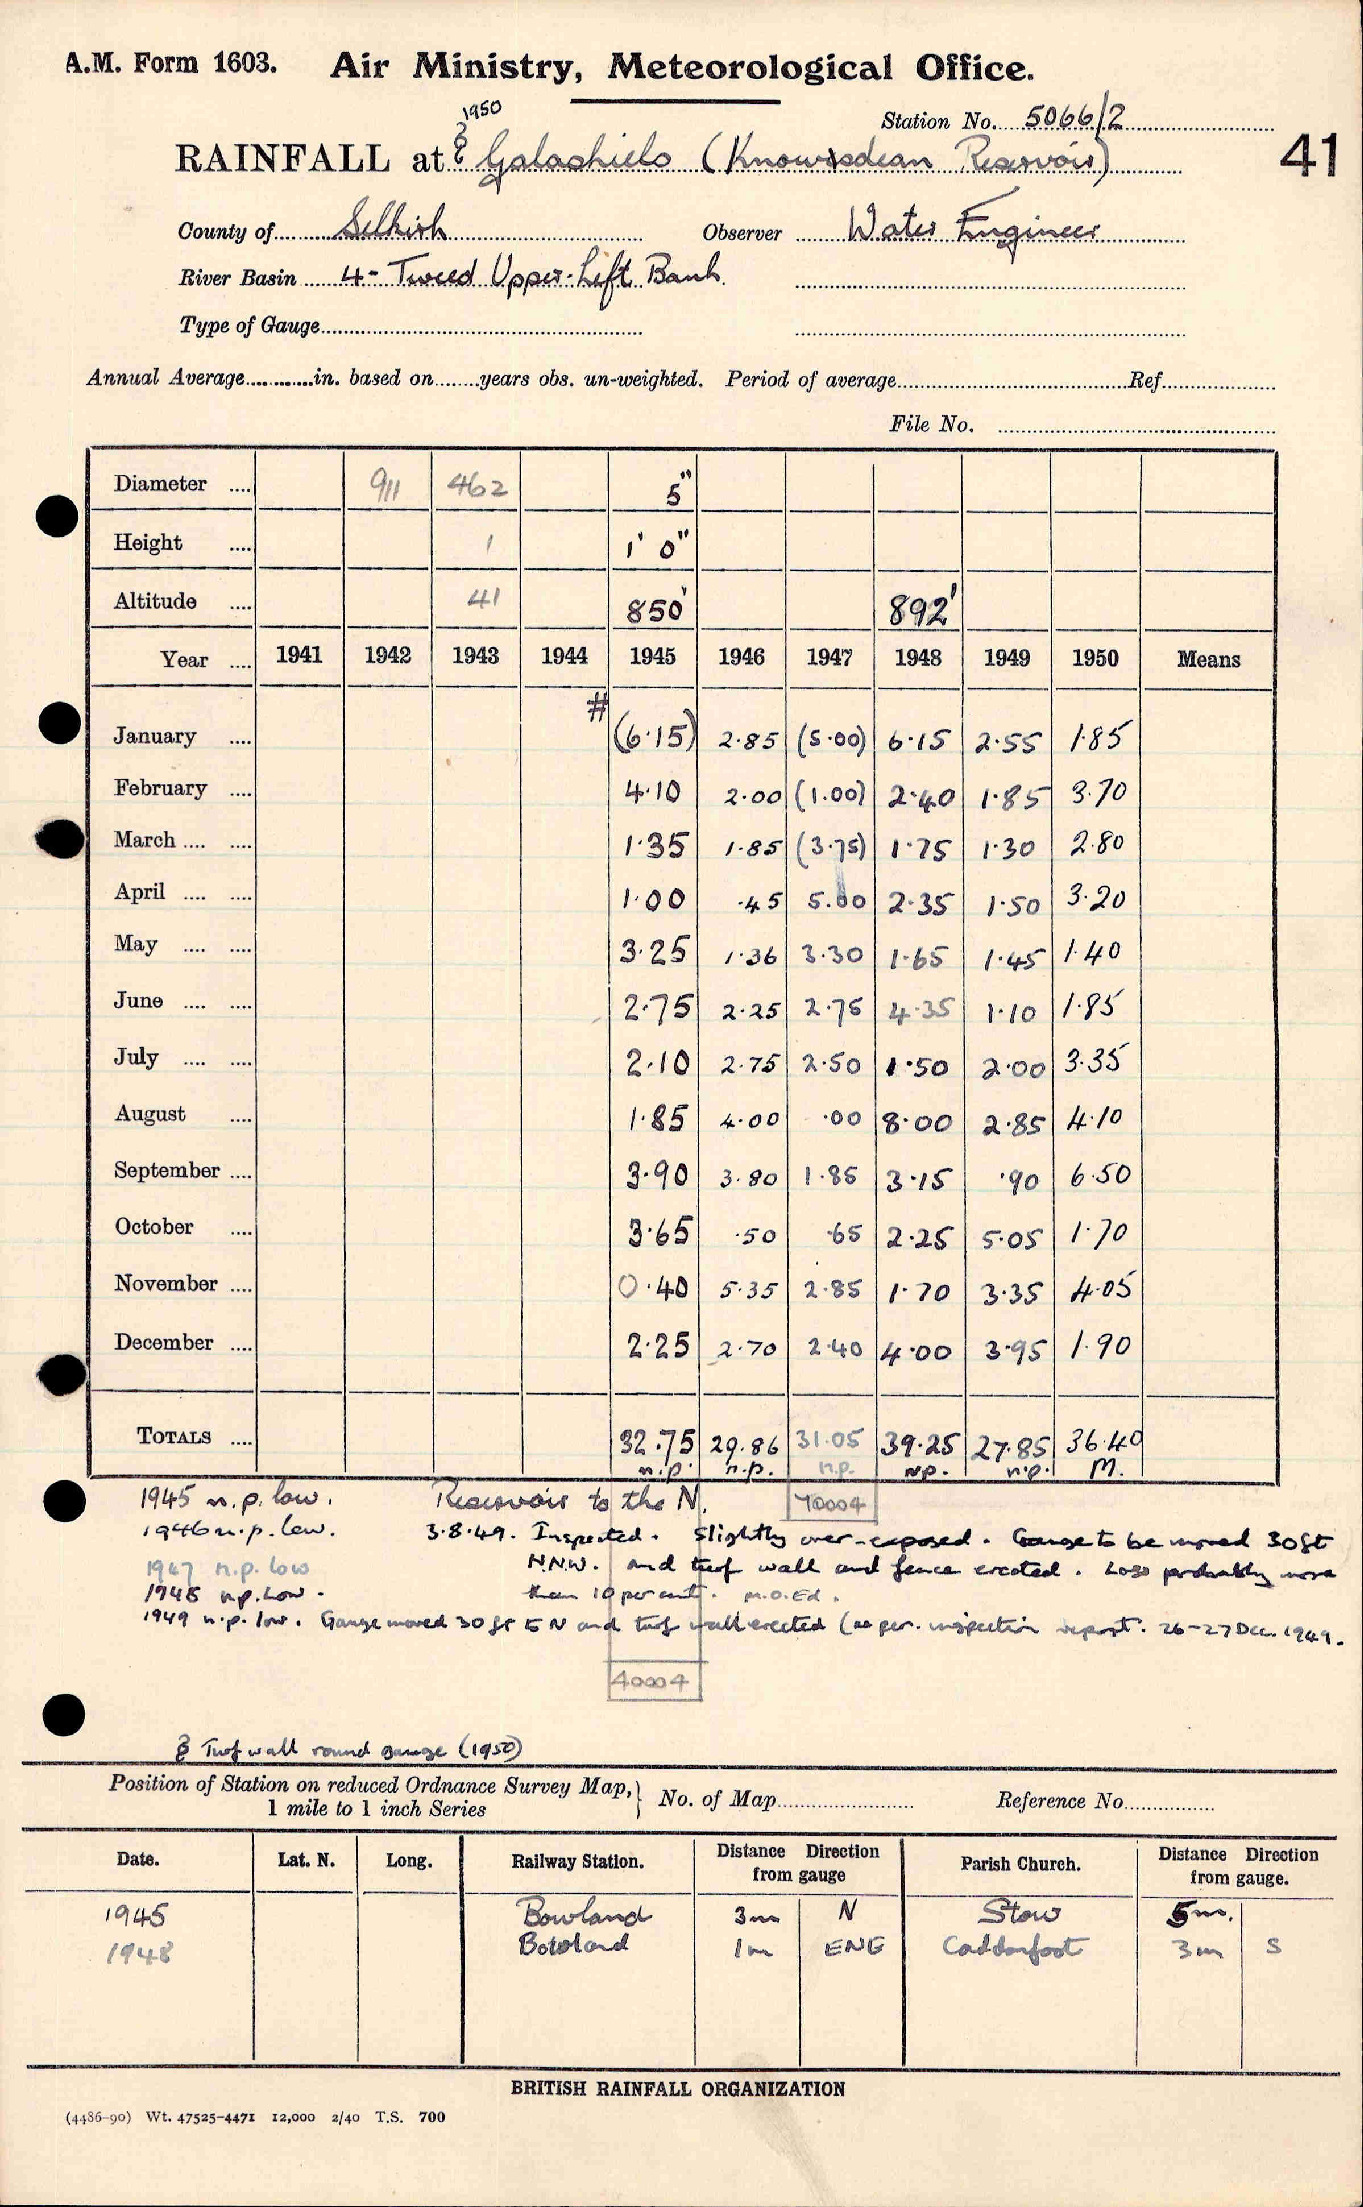 A.M. Form 1603. Air Ministry, Meteorological Office.
1950
Station No. 5066/2
RAINFALL at Galashiels (Knowesdean Reservoir) 41
County of Selkirk Observer Water Engineer
River Basin 4 - Tweed Upper-Left Bank
Type of Gauge
Annual Average............in. based on........years obs. un-weighted. Period of average Ref.
File No.
Diameter .... 911 462 5"
Height .... 1 1' 0"
Altitude .... 41 850' 892'
Year .... 1941 1942 1943 1944 1945 1946 1947 1948 1949 1950 Means
#
January .... (6.15) 2.85 (5.00) 6.15 2.55 1.85
February .... 4.10 2.00 (1.00) 2.40 1.85 3.70
March .... .... 1.35 1.85 (3.75) 1.75 1.30 2.80
April .... .... 1.00 .45 5.00 2.35 1.50 3.20
May .... .... 3.25 1.36 3.30 1.65 1.45 1.40
June .... .... 2.75 2.25 2.75 4.35 1.10 1.85
July .... .... 2.10 2.75 2.50 1.50 2.00 3.35
August .... 1.85 4.00 .00 8.00 2.85 4.10
September .... 3.90 3.80 1.85 3.15 .90 6.50
October .... 3.65 .50 .65 2.25 5.05 1.70
November .... 0.40 5.35 2.85 1.70 3.35 4.05
December .... 2.25 2.70 2.40 4.00 3.95 1.90
TOTALS .... 32.75 29.86 31.05 39.25 27.85 36.40
n.p. n.p. n.p. n.p. n.p. M.
1945 n.p. low. Reservoir to the N. 70004
1946 n.p. low. 3.8.49. Inspected. Slightly over-exposed. Gauge to be moved 30ft
1947 n.p. low N.N.W. and turf wall and fence erected. Loss probably more
1948 n.p. low. than 10 per cent. M.O.Ed.
1949 n.p. low. Gauge moved 30 ft E N and turf wall erected (as per. inspection report. 26-27 Dec. 1949.
40004
Turf wall round gauge (1950)
Position of Station on reduced Ordnance Survey Map, } No. of Map Reference No.
1 mile to 1 inch Series
Date. Lat. N. Long. Railway Station. Distance Direction from gauge Parish Church. Distance Direction from gauge.
1945 Bowland 3m N Stow 5m.
1948 Bowland 1m ENE Caddonfoot 3m S
BRITISH RAINFALL ORGANIZATION
(4486-90) Wt. 47525-4471 12,000 2/40 T.S. 700